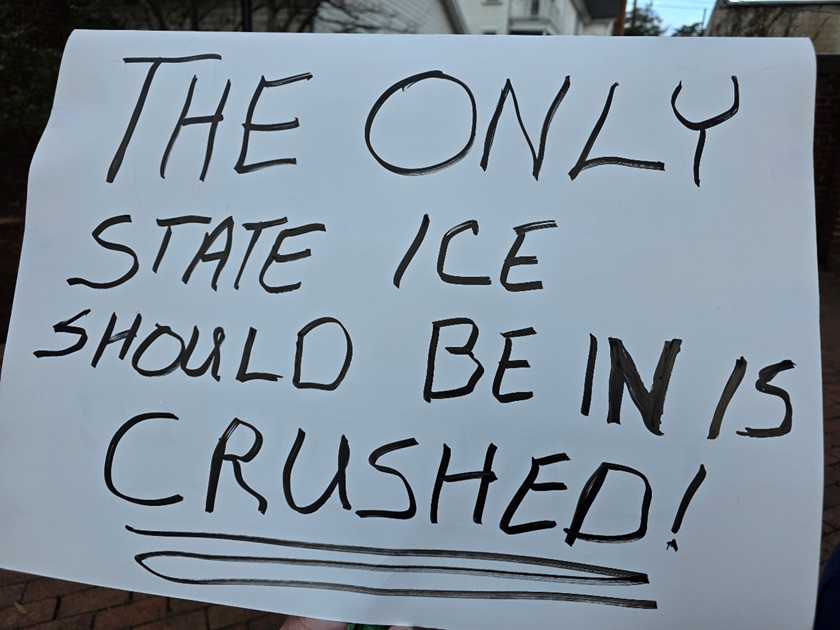 THE ONLY
STATE ICE
SHOULD BE IN IS
CRUSHED!